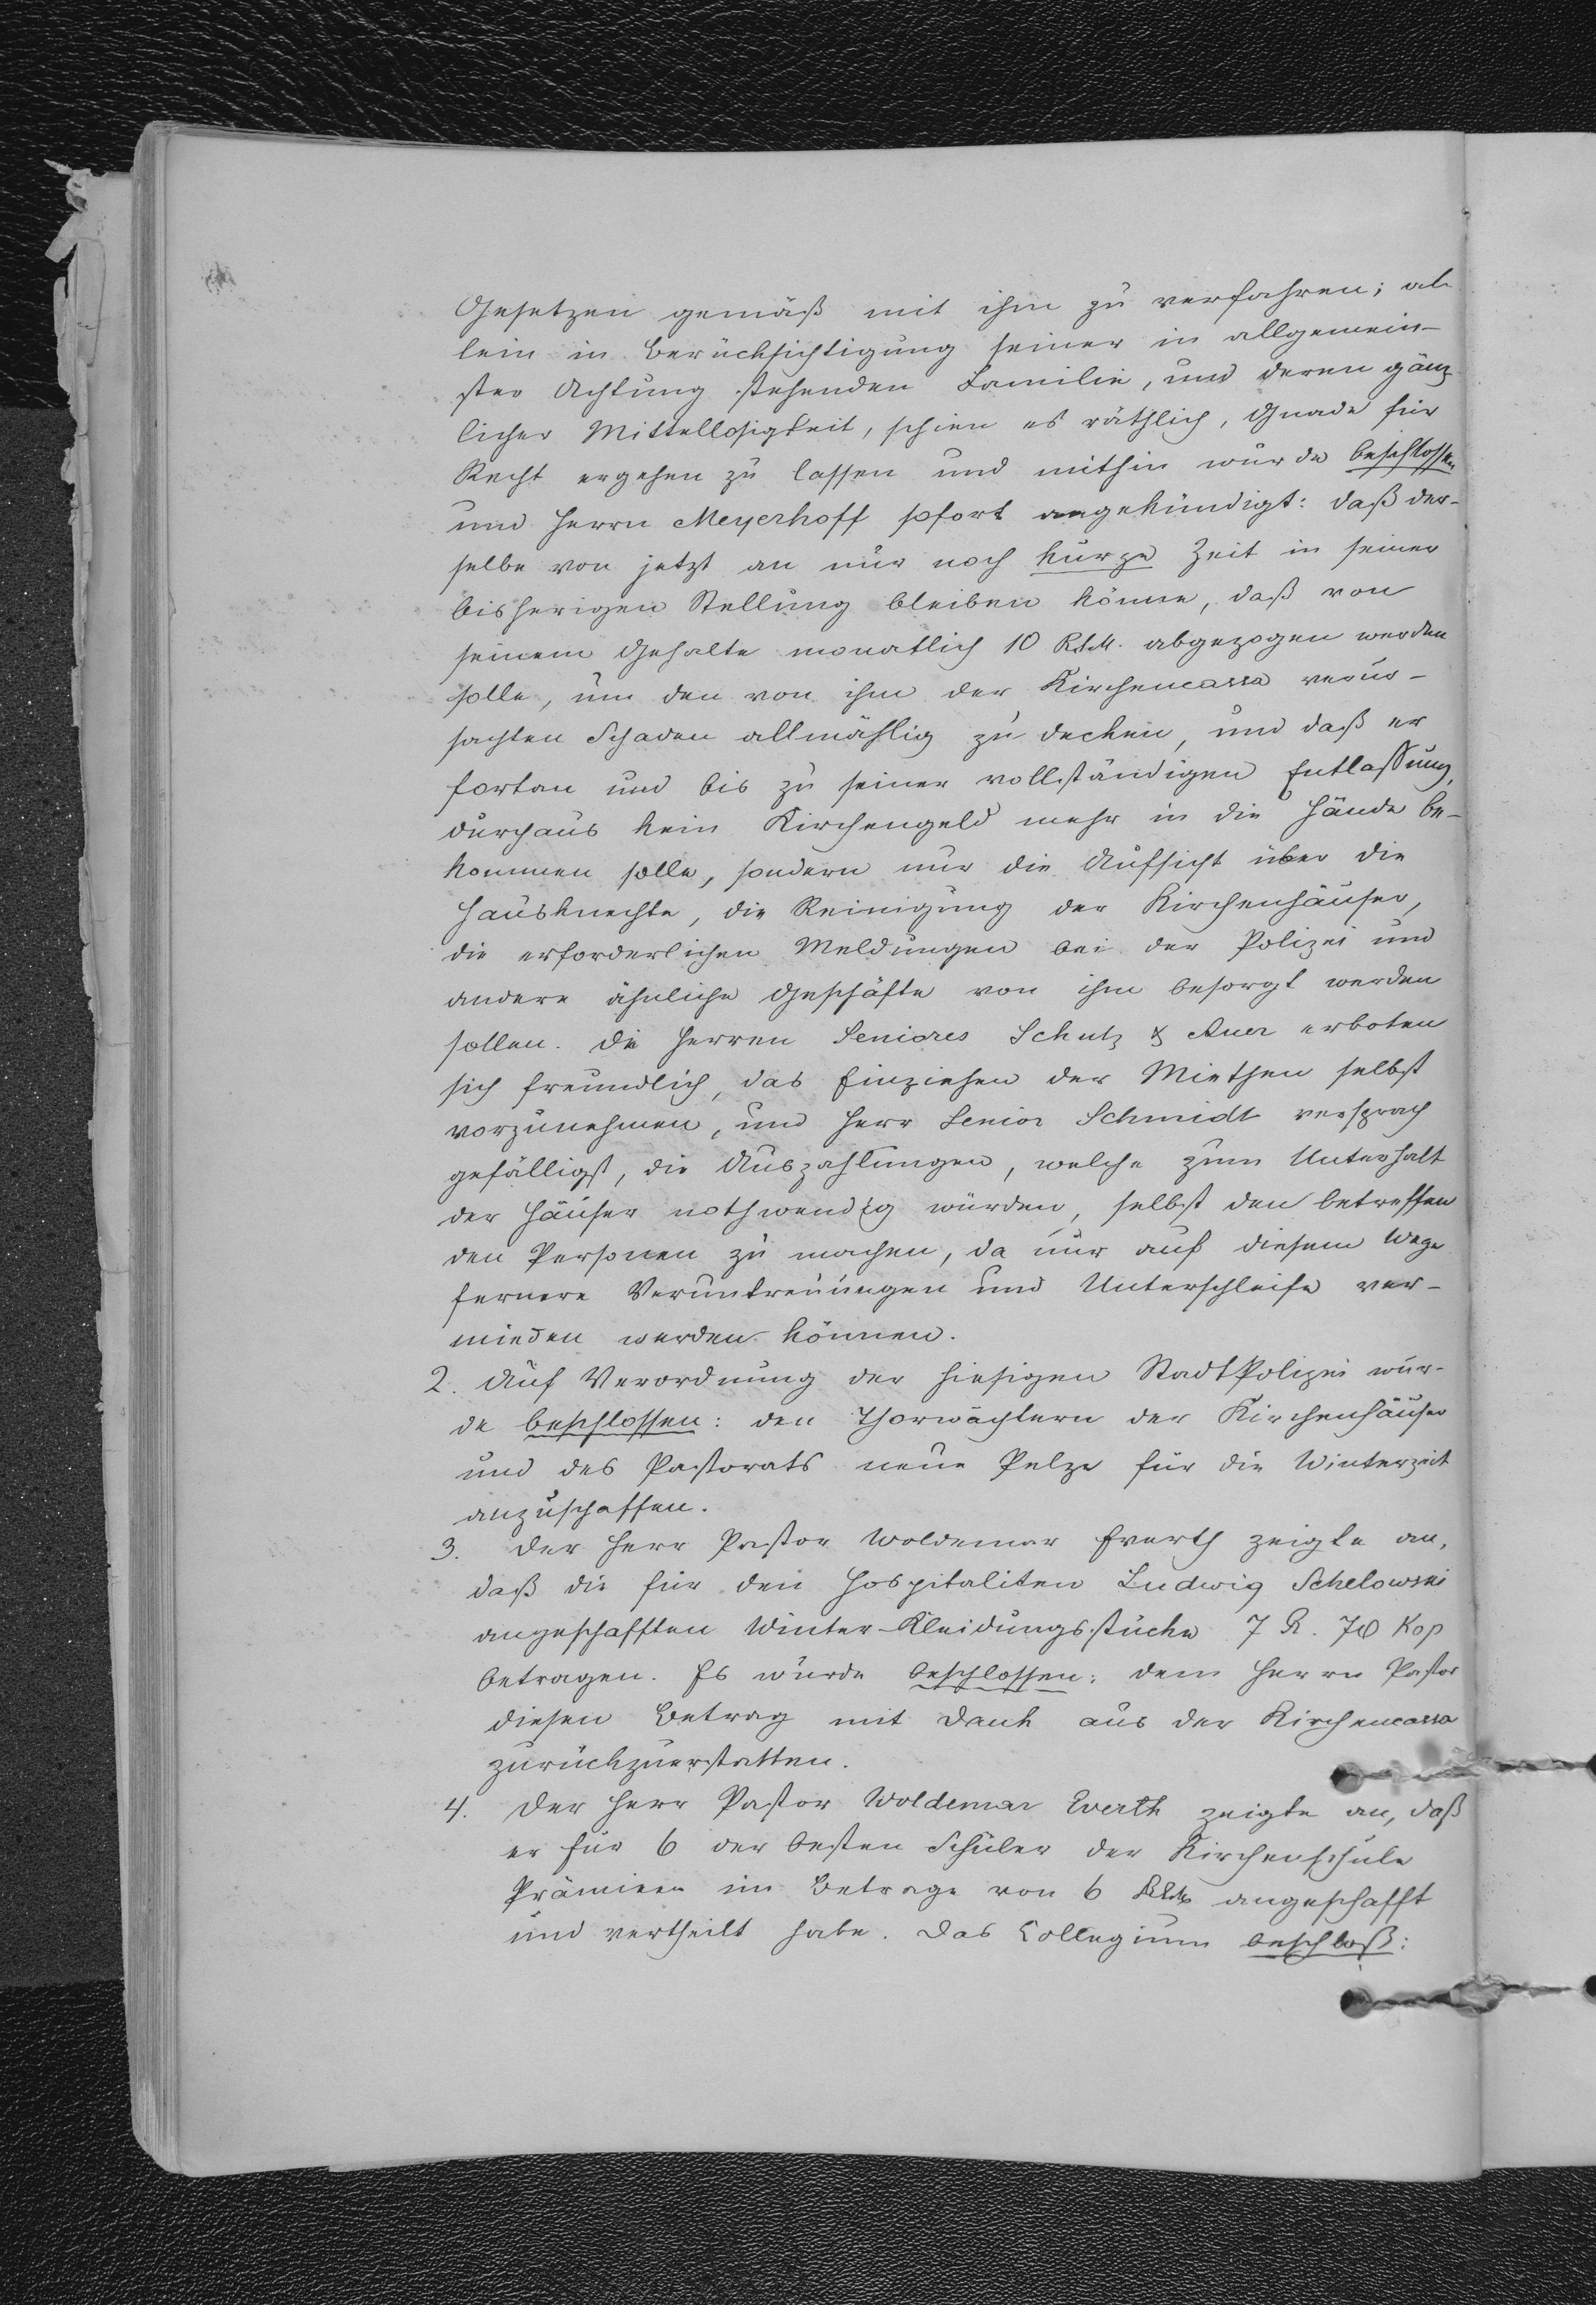 Gesetzen gemäß mit ihm zu verfahren; al-
lein in Berücksichtigung seiner in allgemein-
ster Achtung stehenden Familie, und deren gänz-
licher Mittellosigkeit, schien es räthlich, Gnade für
Recht ergehen zu lassen und mithin wurde beschlossen
und Herrn Meyerhoff sofort angekündigt: daß der-
selbe von jetzt an nur noch kurze Zeit in seiner
bisherigen Stellung bleiben könne, daß von
seinem Gehalte monatlich 10 R.S.M. abgezogen werden
solle, um den von ihm der Kirchencassa verur-
sachten Schaden allmählig zu decken, und daß er
fortan und bis zu seiner vollständigen Entlassung,
durchaus kein Kirchengeld mehr in die Hände be-
kommen solle, sondern nur die Aufsicht über die
Hausknechte, die Reinigung der Kirchenhäuser,
die erforderlichen Meldungen bei der Polizei und
andere ähnliche Geschäfte von ihm besorgt werden
sollen. Die Herren Seniores Schutz & Auer erboten
sich freundlich, das Einziehen der Miethen selbst
vorzunehmen, und Herr Senior Schmidt versprach
gefälligst, die Auszahlungen, welche zum Unterhalt
der Häuser nothwendig würden, selbst den betreffen
den Personen zu machen, da nur auf diesem Wege
fernere Veruntreuungen und Unterschleife ver-
mieden werden können.
2. Auf Verordnung der hiesigen StadtPolizei wur-
de beschlossen: den Thorwächtern der Kirchenhäuser
und des Pastorats neue Pelze für die Winterzeit
anzuschaffen.
3. Der Herr Pastor Woldemar Everth zeigte an,
daß die für den Hospitaliten Ludwig Schelowski
angeschafften Winter-Kleidungsstücke 7 R. 70 Kop
betragen. Es wurde beschlossen: dem Herrn Pastor
diesen Betrag mit Dank aus der Kirchencassa
zurückzuerstatten.
4. Der Herr Pastor Woldemar Everth zeigte an, daß
er für 6 der besten Schüler der Kirchenschule
Prämien im Betrage von 6 angeschafft
und vertheilt habe. Das Collegium beschloß: